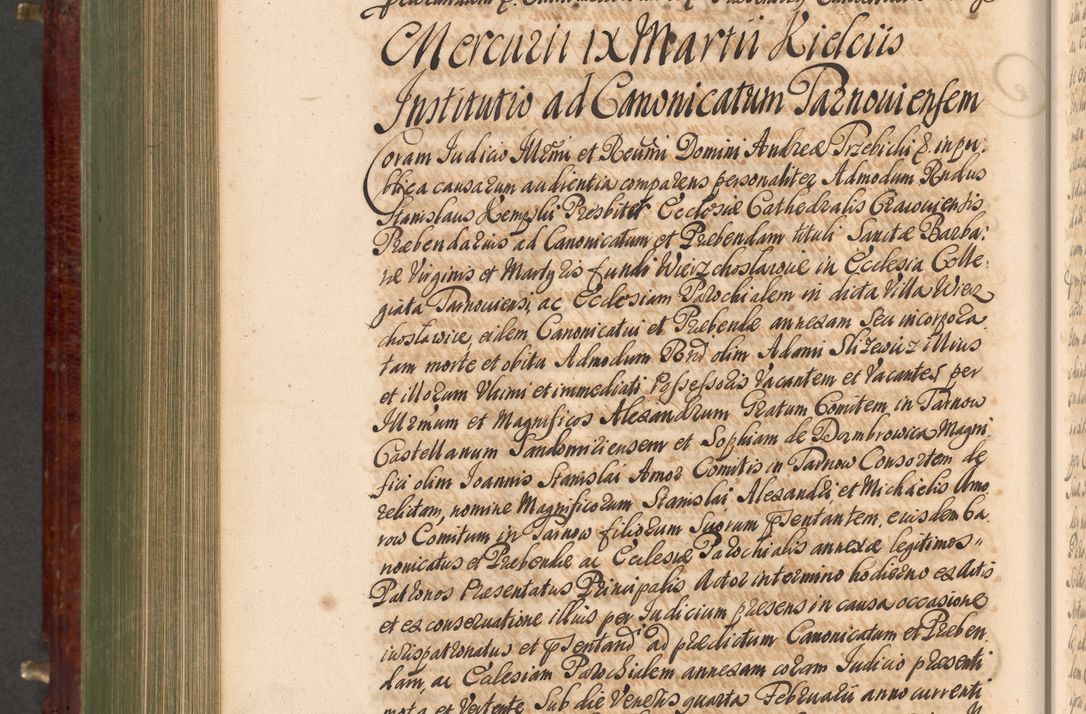 Mercurii IX Martii Kielciis
Institutio ad Canonicatum Tarnoviensem
Coram Judicio Illmi et Reudmi Domini Andreæ Przebichi &. in pu:
blica causarum audientia comparens personaliter Admodum Rndus
Stanislaus Kempski Presbiter Ecclesiæ Cathedralis Cracouiensis
Præbendarius ad Canonicatum et Præbendam tituli Sanctæ Barba:
ræ Virginis et Martyris fundi Wierzchoslawæ in Ecclesia Colle:
giata Tarnouiensi, ac Ecclesiam Parochialem in dicta Villa Wierz
choslawice, eidem Canonicatui et Præbendæ annexam seu incorpora
tam morte et obitu Admodum Rnd olim Adami Slizewicz illius
et illorum Ultimi et immediati Possessoris Vacantem et Vacantes, per
Illrmum et Magnificos Alexandrum Gratum Comitem in Tarnow
Castellanum Sandomiriensem et Sophiam de Dembrowica Magni
fici olim Joannis Stanislai Amor Comitis in Tarnow Consortem de
relictam, nomine Magnificorum Stanislai Alexandri et Michaelis Amo
row Comitum in Tarnow filiorum suorum pñsentantem, eiusdem Ca.
nonicatus et Præbendæ ac Ecclesiæ Parochialis annexæ legitimos "
Patronos Præsentatus Principalis, Actor in termino hodierno ex Actis
et ex conseruatione illius per Judicium præsens in causa occasione
iurispatronatus et pñsentand ad prædictum Canonicatum et Præben.
dam, ac Ecclesiam Parochialem annexam coram Judicio præsenti
mota et Vertente sub die Veneris quarta Februarii anno currenti